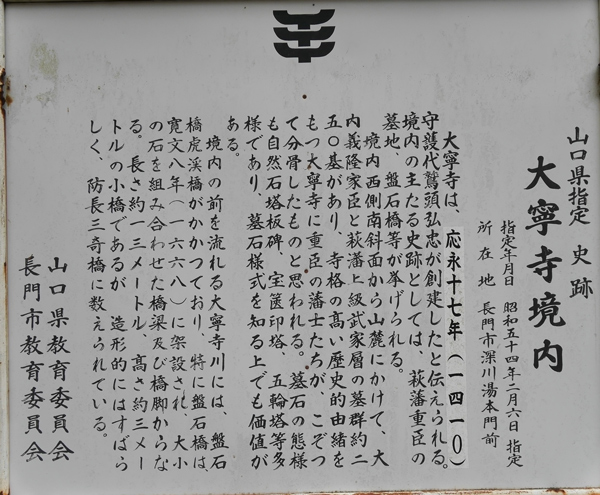 山口県指定 史跡
大寧寺境内
指定年月日 昭和五十四年二月六日指定
所在地 長門市深川湯本門前
大寧寺は、応永十七年(一四一〇)
守護代鷲頭弘忠が創建したと伝えられる。
境内の主たる史跡としては、萩藩重臣の
墓地、盤石橋等が挙げられる。
境内西側南斜面から山麓にかけて、大
内義隆家臣と萩藩上級武家層の墓群約二
五〇基があり、寺格の高い歴史的由緒を
もつ大寧寺に重臣の藩士たちが、こぞっ
て分骨したものと思われる。墓石の態様
も自然石塔板碑、宝篋印塔、五輪塔等多
様であり、墓石様式を知る上でも価値が
ある。
境内の前を流れる大寧寺川には、盤石
橋虎渓橋がかかっており、特に盤石橋は
寛文八年(一六六八)に架設され、大小
の石を組み合わせた橋梁及び橋脚からな
る。長さ約一三メートル、高さ約三メー
トルの小橋であるが、造形的にはすばら
しく、防長三奇橋に数えられている。
山口県教育委員会
長門市教育委員会